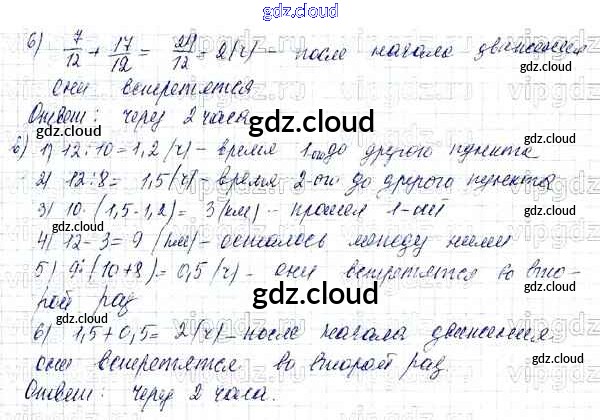 gdz.cloud
6) 7/12 + 17/12 = 24/12 = 2(ч) - после начала движения
они встретятся
gdz.cloud
Ответ: через 2 часа.
gdz.cloud
б) 1) 12:10=1,2(ч) - время 1-ого до другого пункта
2) 12:8= 1,5(ч) - время 2-ого до другого пункта
3) 10·(1,5-1,2)= 3(км) - прошел 1-ый
gdz.cloud
4) 12-3=9 (км) - осталось между ними
5) 9:(10+8)=0,5(ч) - они встретятся во вто-
рой раз
gdz.cloud
6) 1,5+0,5=2(ч) - после начала движения
gdz.cloud
они встретятся во второй раз.
gdz.cloud
Ответ: через 2 часа.
gdz.cloud